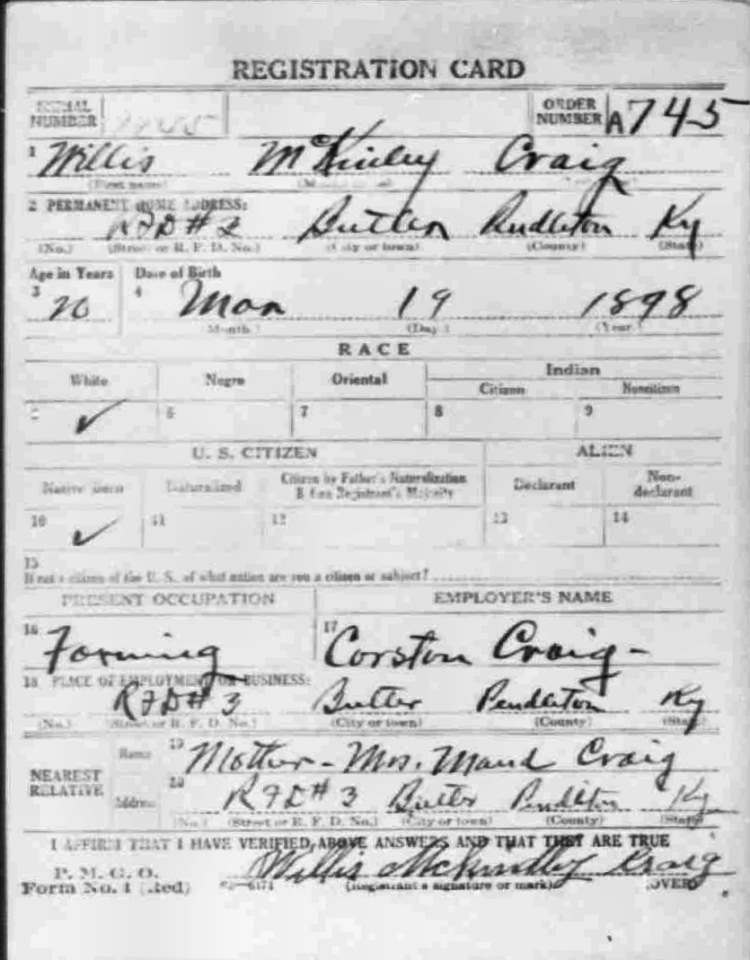 REGISTRATION CARD
SERIAL NUMBER ORDER NUMBER A745
1 Willis McKinley Craig
(First name)
2 PERMANENT HOME ADDRESS:
RFD # 3 Butler Pendleton Ky
(No.) (Street or R. F. D. No.) (City or town) (County) (State)
Age in Years Date of Birth
3 20 4 Mar 19 1898
(Month.) (Day.) (Year.)
RACE
White Negro Oriental Indian
Citizen Noncitizen
5 ✓ 6 7 8 9
U. S. CITIZEN ALIEN
Native Born Naturalized Citizen by Father's Naturalization Before Registrant's Majority Declarant Non-declarant
10 ✓ 11 12 13 14
15
If not a citizen of the U. S., of what nation are you a citizen or subject?
PRESENT OCCUPATION EMPLOYER'S NAME
16 Farming 17 Corston Craig-
18 PLACE OF EMPLOYMENT OR BUSINESS:
RFD # 3 Butler Pendleton Ky
(No.) (Street or R. F. D. No.) (City or town) (County) (State)
NEAREST RELATIVE Name 19 Mother - Mrs. Maud Craig
Address 20 RFD # 3 Butler Pendleton Ky
(No.) (Street or R. F. D. No.) (City or town) (County) (State)
I AFFIRM THAT I HAVE VERIFIED ABOVE ANSWERS AND THAT THEY ARE TRUE
P. M. G. O.
Form No. 1 (Red) Willis McKindley Craig
(Registrant's signature or mark) (OVER)